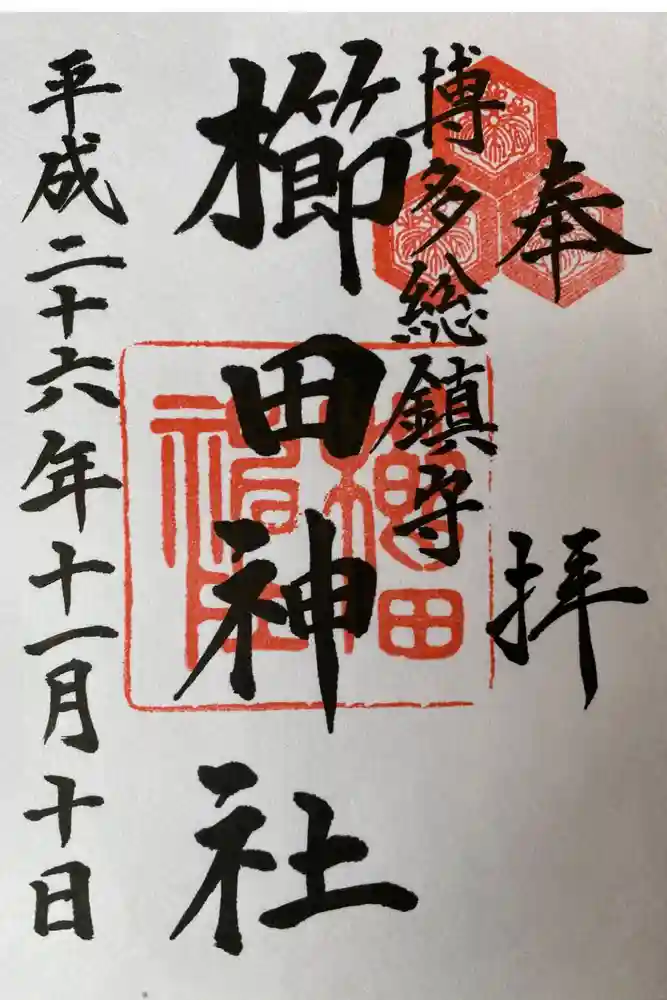 奉拝
博多総鎮守
櫛田神社
平成二十六年十一月十日